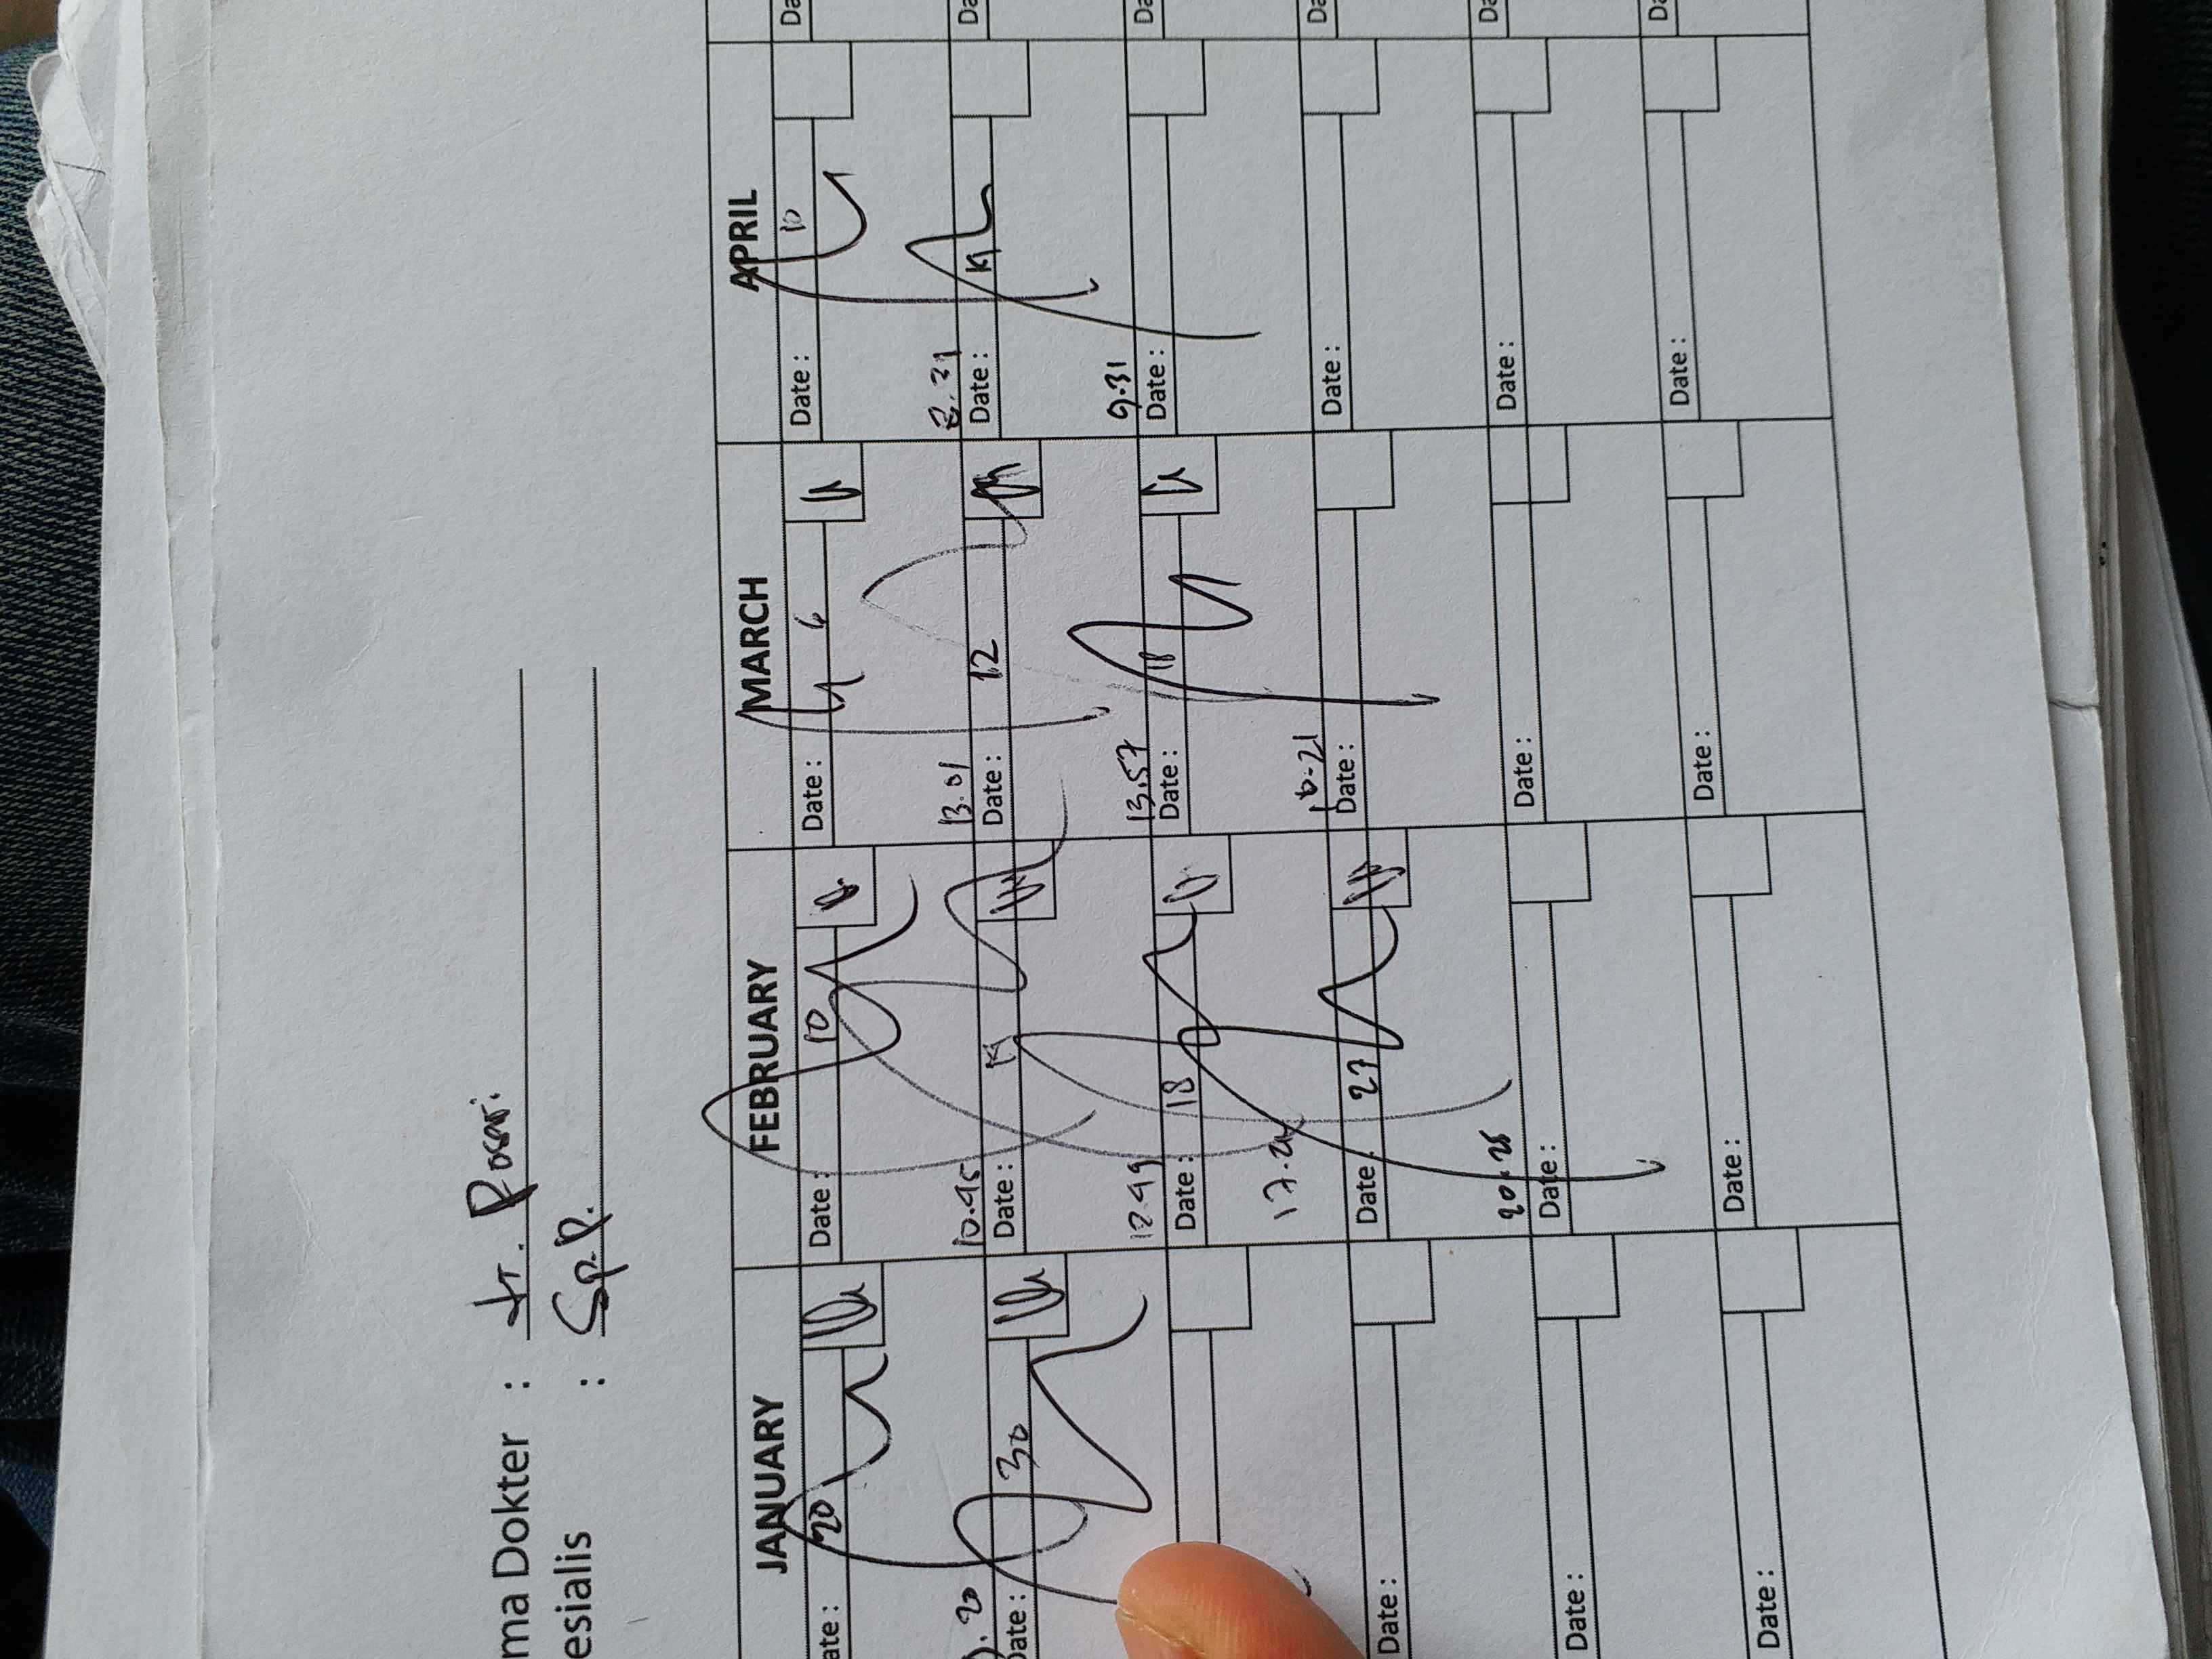 ma Dokter : dr. Rosari
esialis : Sp.P.
JANUARY FEBRUARY MARCH APRIL
ate : 20 Date : 10 Date : 6 Date : 10 Da
. 20 10.45 13.01 8.31
Date : 30 Date : Date : 12 Date : Da
12.49 13.57 9.31
Date : 18 Date : 18 Date : Da
17.24 16.21
Date : Date : 27 Date : Date : Da
20.26
Date : Date : Date : Date : Da
Date : Date : Date : Date : Da